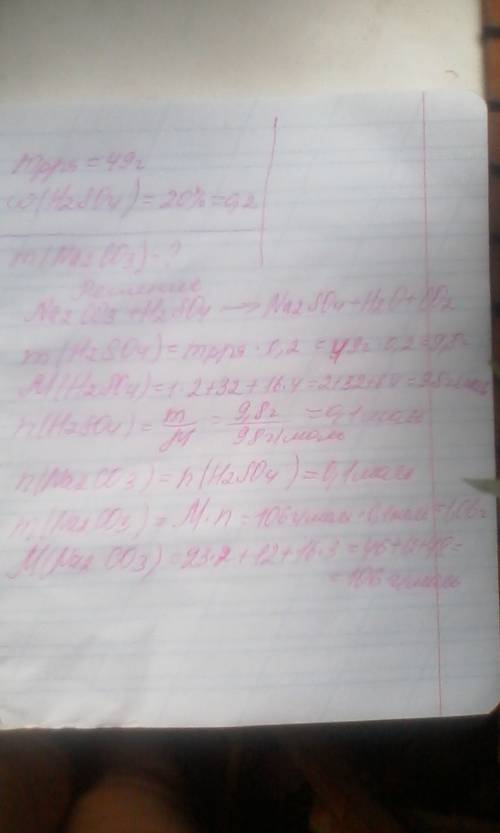 mрра = 49г
ω(H2SO4) = 20% = 0,2
m(Na2CO3) - ?
Решение
Na2CO3 + H2SO4 → Na2SO4 + H2O + CO2
m(H2SO4) = mрра · 0,2 = 49г · 0,2 = 9,8г
M(H2SO4) = 1·2+32+16·4 = 2+32+64 = 98г/моль
n(H2SO4) = m/M = 9,8г/98г/моль = 0,1моль
n(Na2CO3) = n(H2SO4) = 0,1моль
m(Na2CO3) = M·n = 106г/моль · 0,1моль = 1,06г
M(Na2CO3) = 23·2+12+16·3 = 46+12+48 =
= 106г/моль